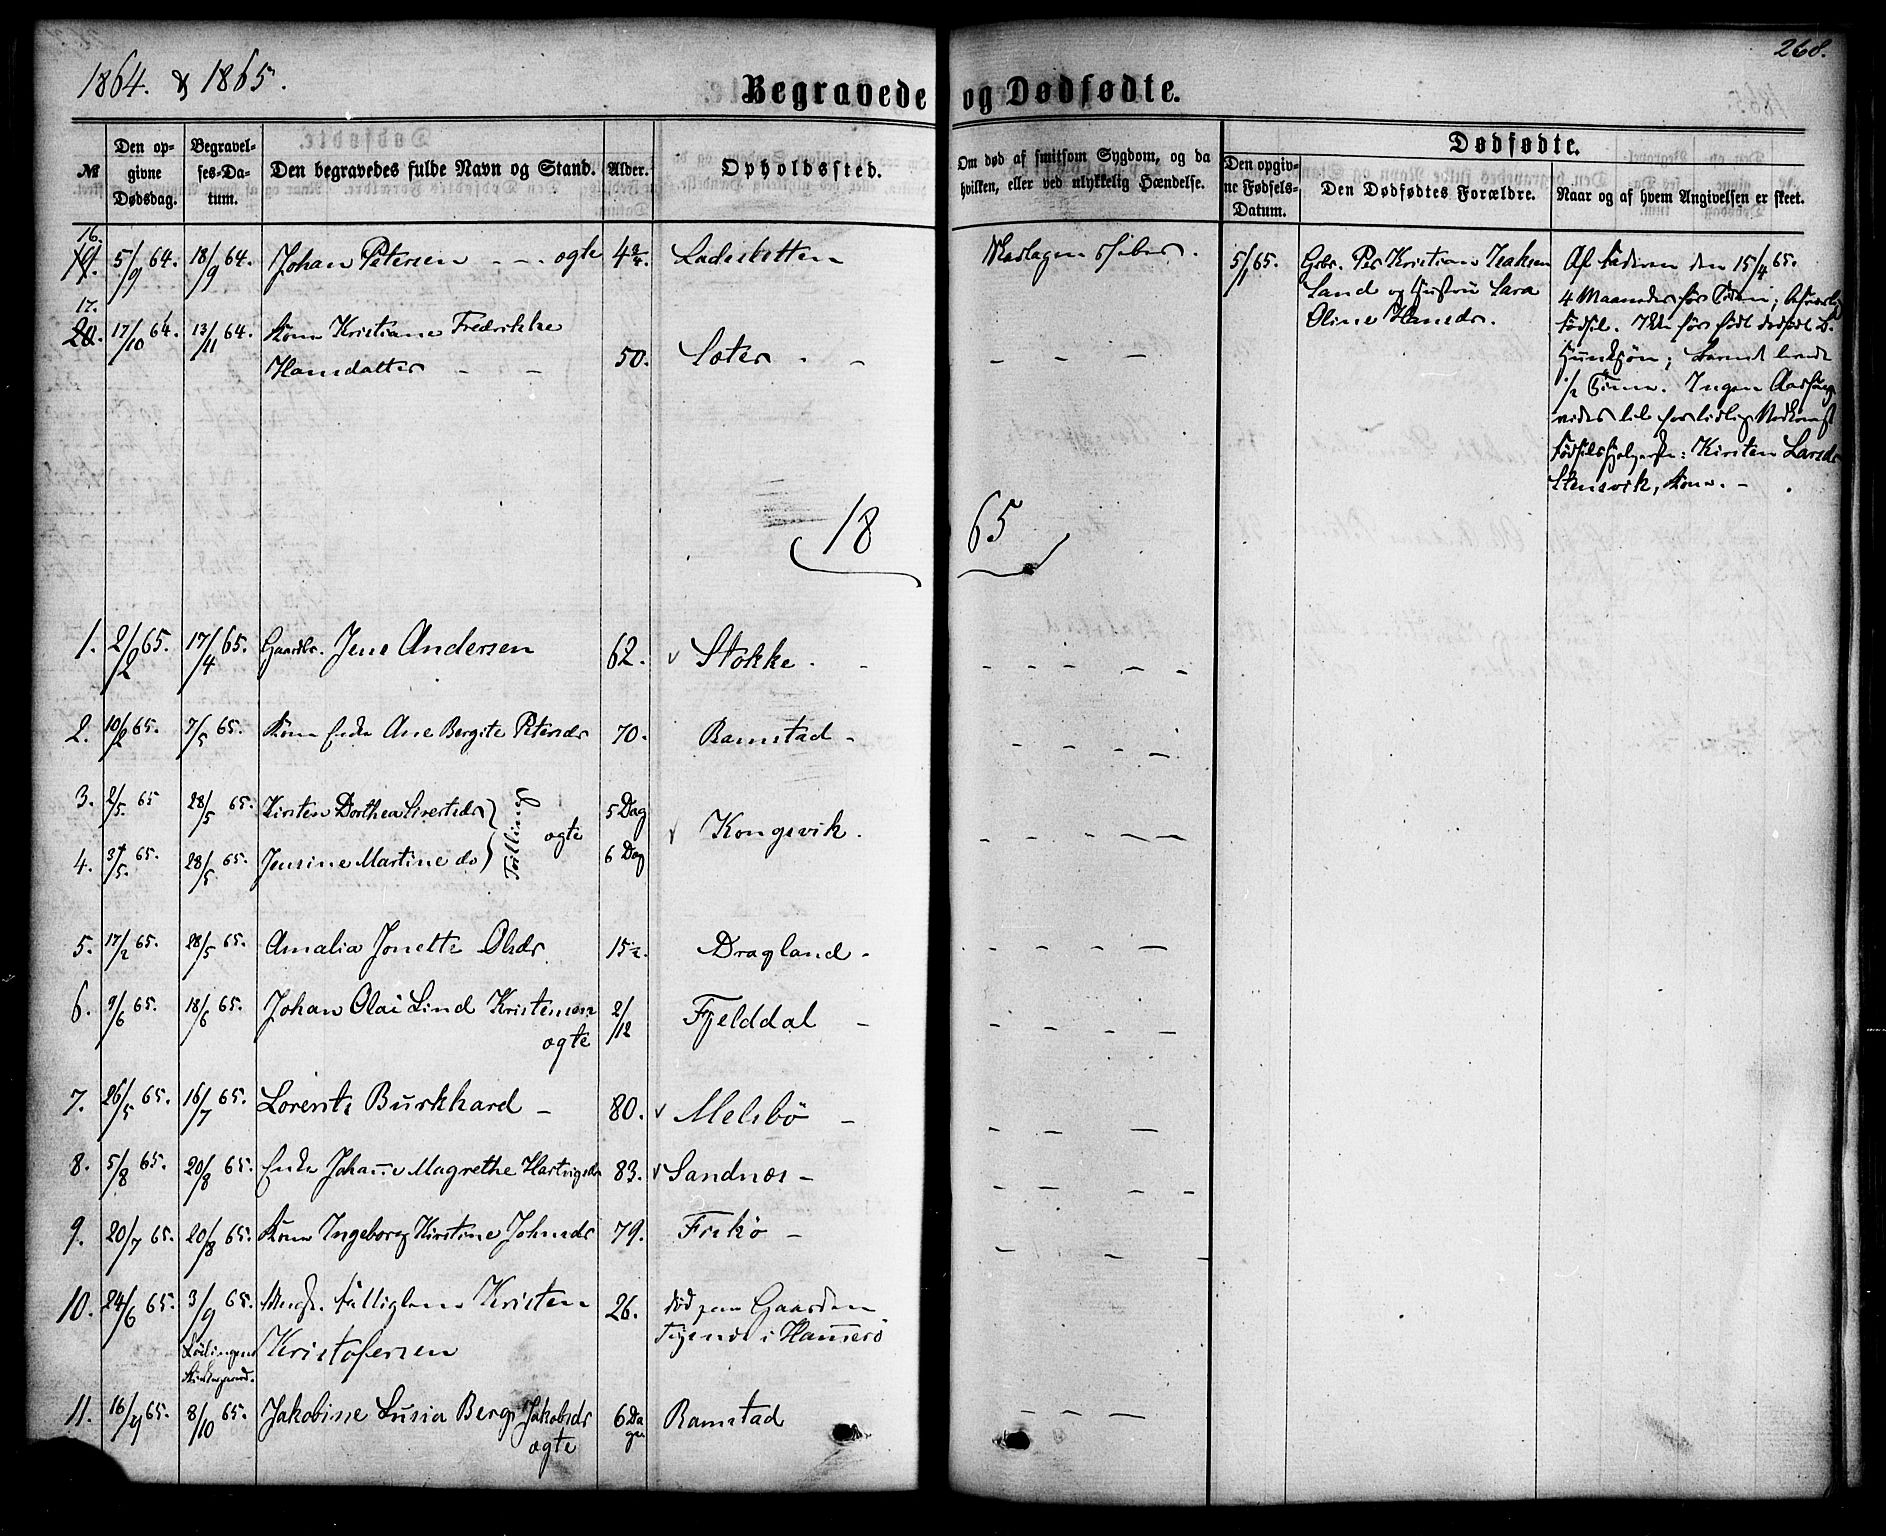 268.
1864. & 1865.
Begravede og Dødfødte.
Dødfødte.
№
Den opgivne Dødsdag.
Begravelses-Datum.
Den begravedes fulde Navn og Stand.
Alder.
Opholdssted.
Om død af smitsom Sygdom, og da hvilken, eller ved ulykkelig Hændelse.
Den opgivne Fødsels-Datum.
Den Dødfødtes Forældre.
Naar og af hvem Angivelsen er skeet.
16.
19. 5/9 64. 18/9 64. Johan Petersen - - . ogte
17.
20. 17/10 64. 13/11 64. Kone Kristiane Fredrikke
Hansdatter - - 50. Sæter - - - - -
5/1 65. Gbr. Per Kristian Isaksen
Land og Hustru Sara
Oline Hansdr.
Af Faderen den 15/4 65.
4 Maaneder før Tiden;
1/2 Time. Ingen
Kirsten Larsdr
Stensvik, Kone. -
18 65
1. 2/2 65. 17/4 65. Gaardbr. Jens Andersen 62. Stokke. - - - - - -
2. 10/2 65. 7/5 65. Kone Enke Ane Bergite Petersdr 70. Ramstad - - - - -
3. 2/5. 65 28/5 65. Kirsten Dorthea Sivertsdr 5 Dag
Tvilling ogte Kongsvik. - - - - -
4. 3/5. 65. 28/5 65. Jensine Martine do 6 Dag
5. 17/2 65. 28/5 65. Amalia Jonette Olsdr 15 1/2. Dragland - - - - -
6. 9/6 65. 18/6 65. Johan Olai Lind Kristensen 2/12 Fjelddal - - - - - -
ogte
7. 26/5 65. 16/7 65. Lorents Burkhard - 80. Melsbö - - - -
8. 5/8 65. 20/8 65. Enke Johanne Magrethe Hartvigsdr 83. Sandnæs - - - - -
9. 20/7 65. 20/8 65. Kone Ingeborg Kirstine Johnsdr 79. Fiskö - - - -
10. 24/6 65. 3/9 65. Kristen 26. död paa Gaarden
Lødingens Kristofersen i Hammerö
Kirkegaard.
11. 16/9 65. 8/10 65. Jakobine Lusia Berg Jakobsdr 6 Da Ramstad - - -
ogte ge